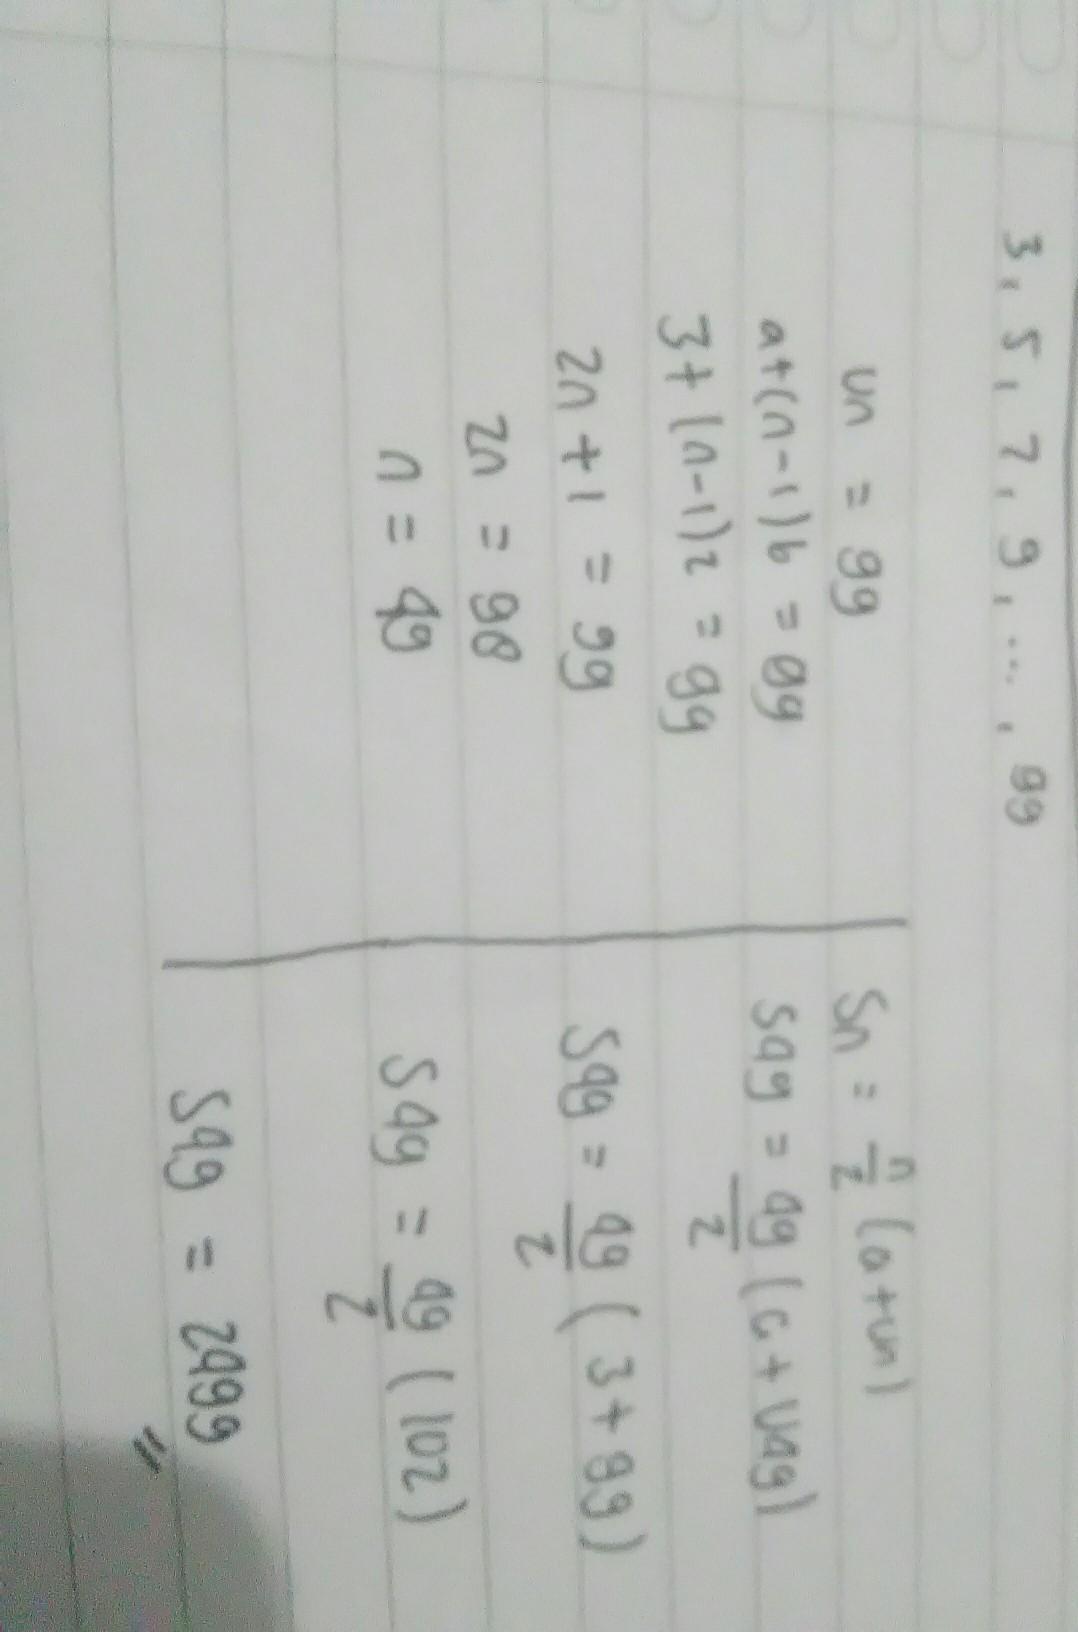 3, 5, 7, 9, ... , 99
Un = 99
a+(n-1)b = 99
3+(n-1)2 = 99
2n + 1 = 99
2n = 98
n = 49
Sn = n/2 (a+un)
S49 = 49/2 (a+U49)
S49 = 49/2 ( 3 + 99)
S49 = 49/2 ( 102)
S49 = 2499 //